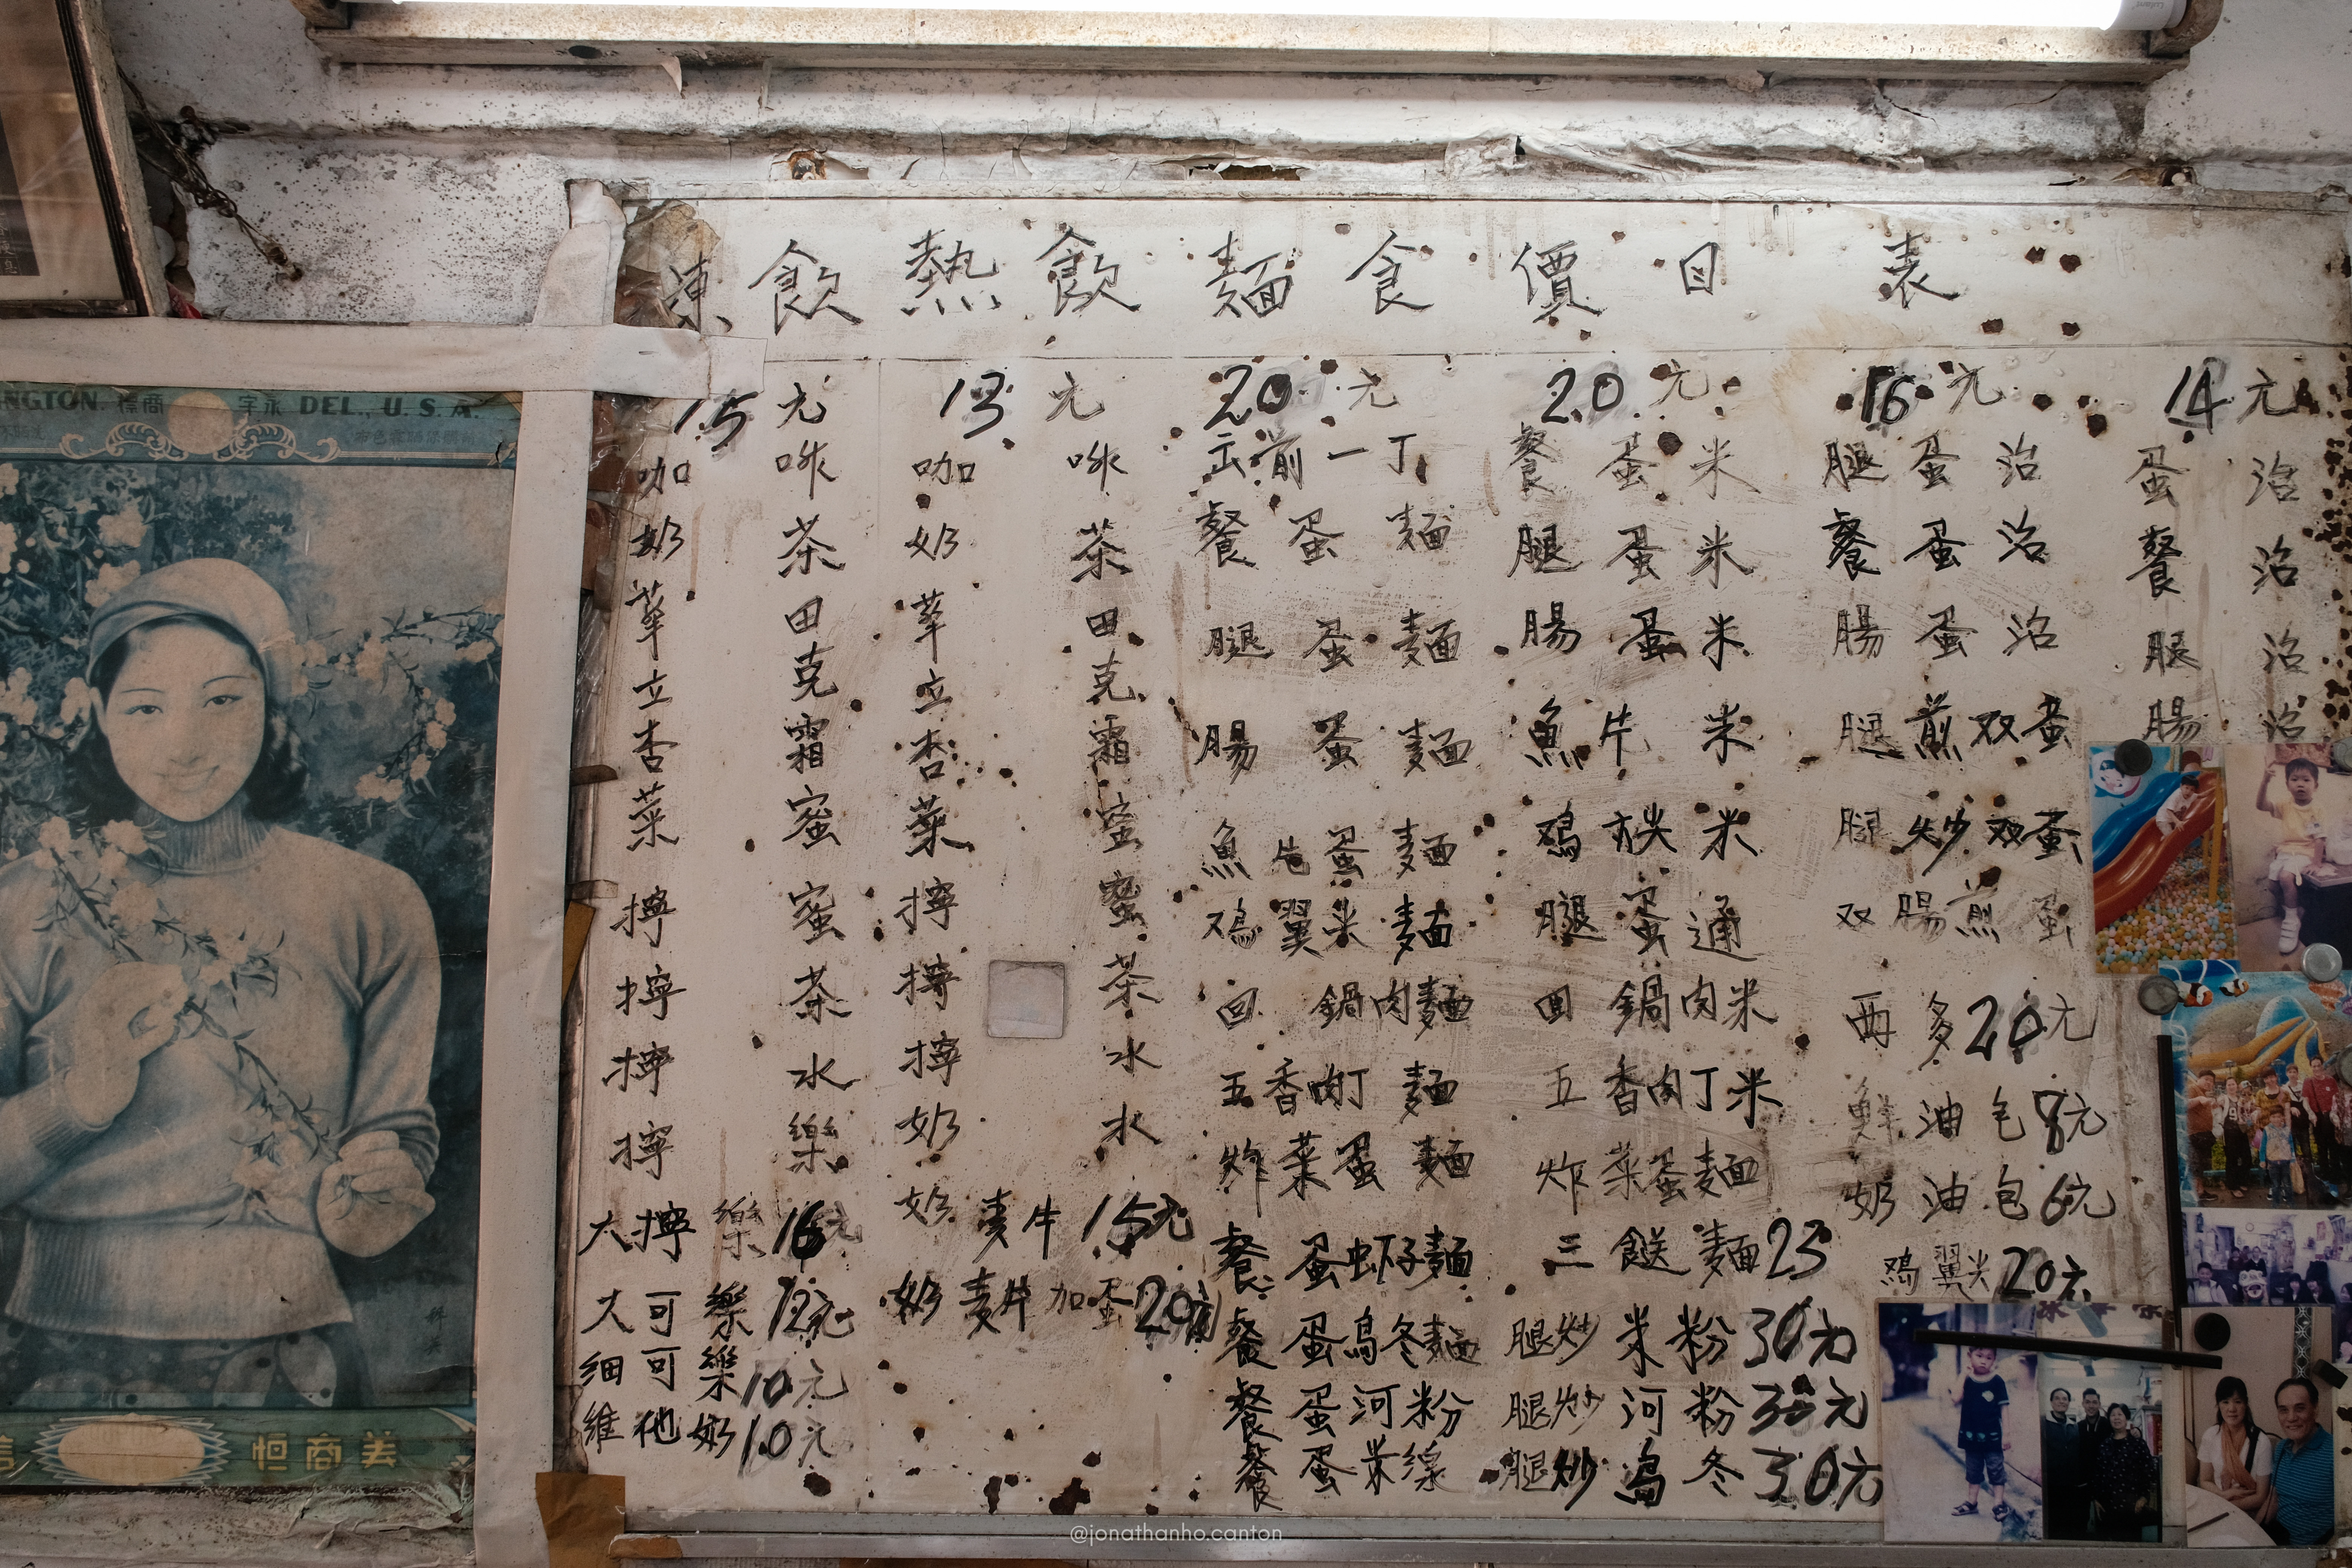 凍飲熱飲麵食價目表
15元
咖啡
奶茶
華田
立克
杏霜
菜蜜
擰蜜
擰茶
擰水
擰樂
大擰樂16元
大可樂12元
細可樂10元
維他奶10元
13元
咖啡
奶茶
華田
立克
杏霜
菜蜜
擰蜜
擰茶
擰水
奶水
奶麦片15元
奶麦片加蛋20元
20元
出前一丁
餐蛋麵
腿蛋麵
腸蛋麵
魚片蛋麵
鸡翼米麵
回鍋肉麵
五香肉丁麵
炸菜蛋麵
餐蛋虾子麵
餐蛋烏冬麵
餐蛋河粉
餐蛋米線
20元
餐蛋米
腿蛋米
腸蛋米
魚片米
鸡米
腿蛋通
回鍋肉米
五香肉丁米
炸菜蛋麵
三餸麵25
腿炒米粉30元
腿炒河粉30元
腿炒烏冬30元
16元
腿蛋治
餐蛋治
腸蛋治
腿煎双蛋
腿炒双蛋
双腸煎蛋
西多20元
鮮油包8元
奶油包6元
鸡翼尖20元
14元
蛋治
餐治
腿治
腸治
NGTON. 標商 字永 DEL., U. S. A.
恒商美
@jonathanho.canton